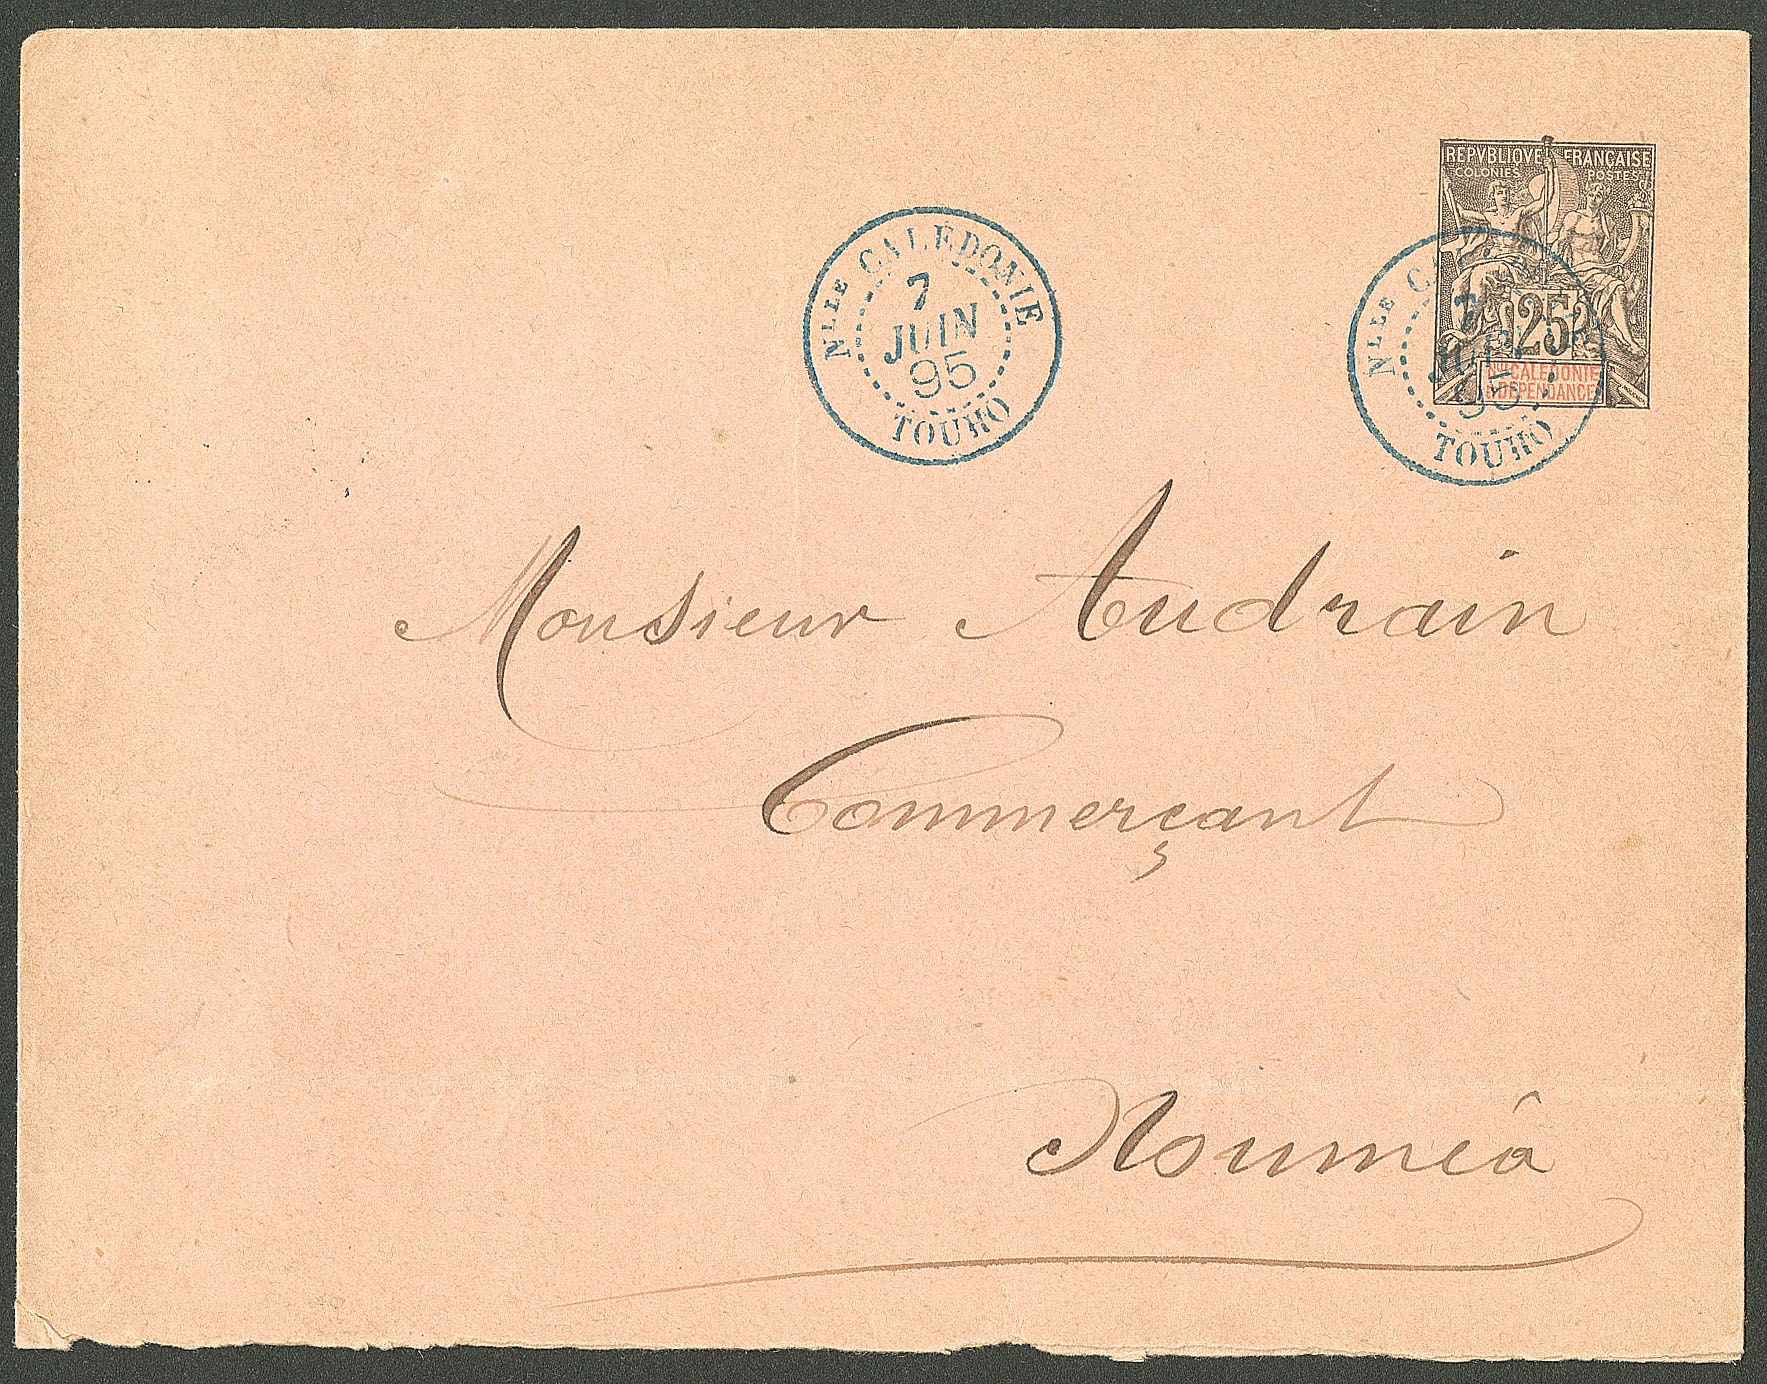 REPVBLIQVE FRANÇAISE
COLONIES POSTES
25
Nlle CALEDONIE
& DÉPENDANCES
Nlle CALEDONIE
7
JUIN
95
TOUHO
Nlle
7
95
TOUHO
Monsieur Audrain
Commerçant
Nouméa